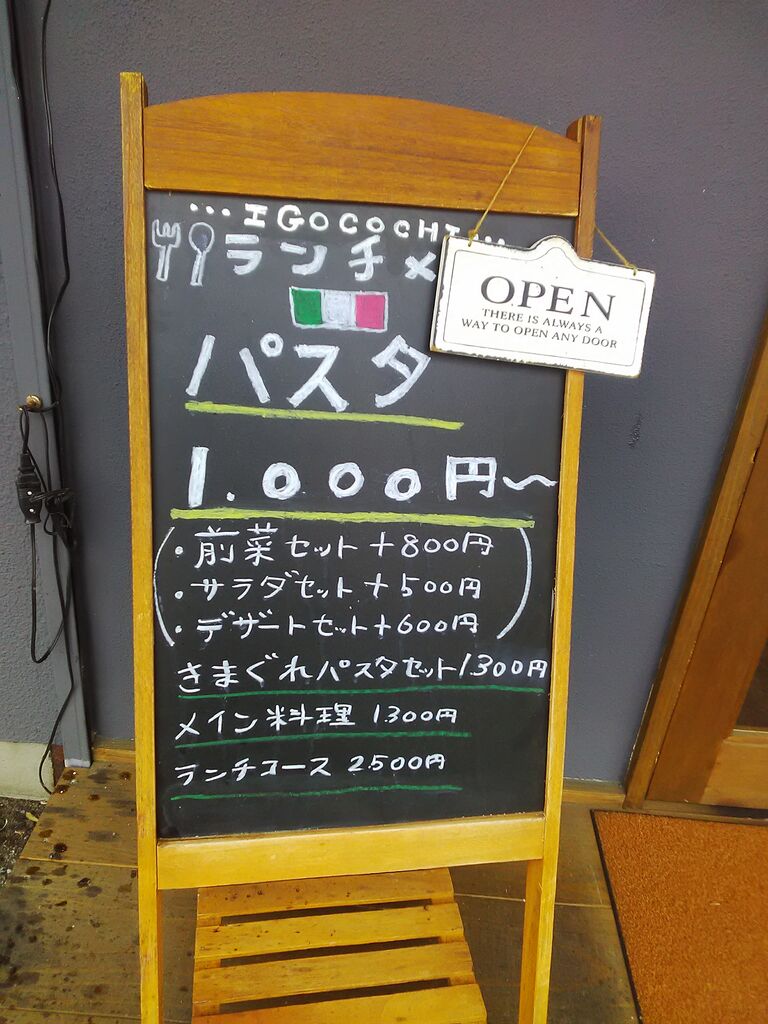 ...IGOCOCHI...
ランチメ
パスタ
1.000円～
(・前菜セット+800円
・サラダセット+500円
・デザートセット+600円)
きまぐれパスタセット1300円
メイン料理 1300円
ランチコース 2500円
OPEN
THERE IS ALWAYS A
WAY TO OPEN ANY DOOR